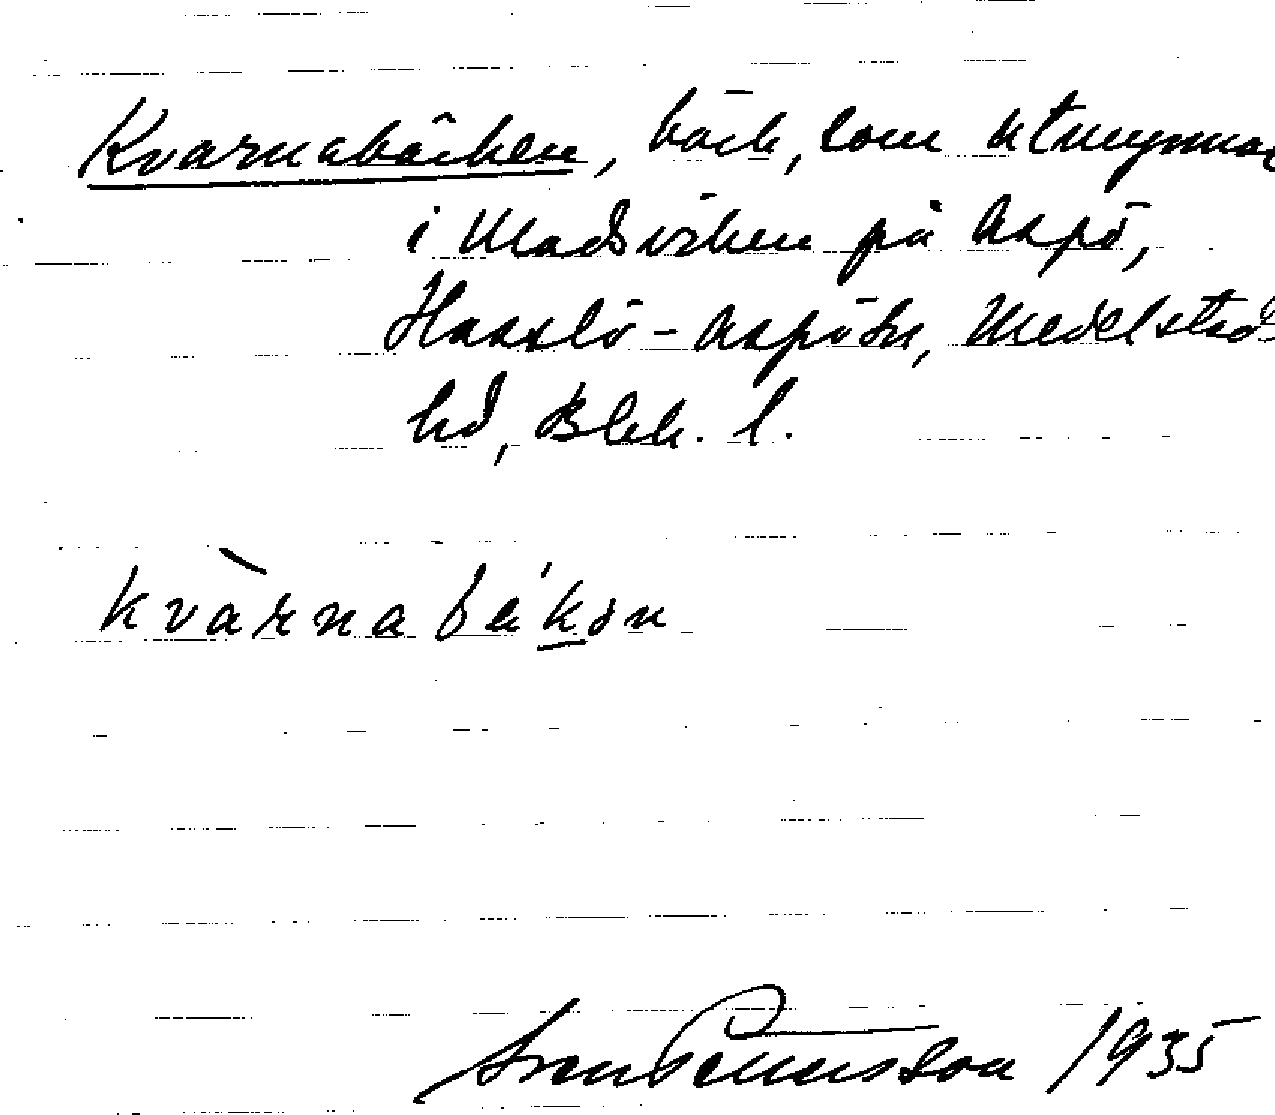 Kvarnabäcken, bäck, som utmynnar
i Madviken på Aspö,
Hasslö-Aspö sn, Medelstad
hd, Blek. l.
kvàrnabäkən
Sven Benson 1935